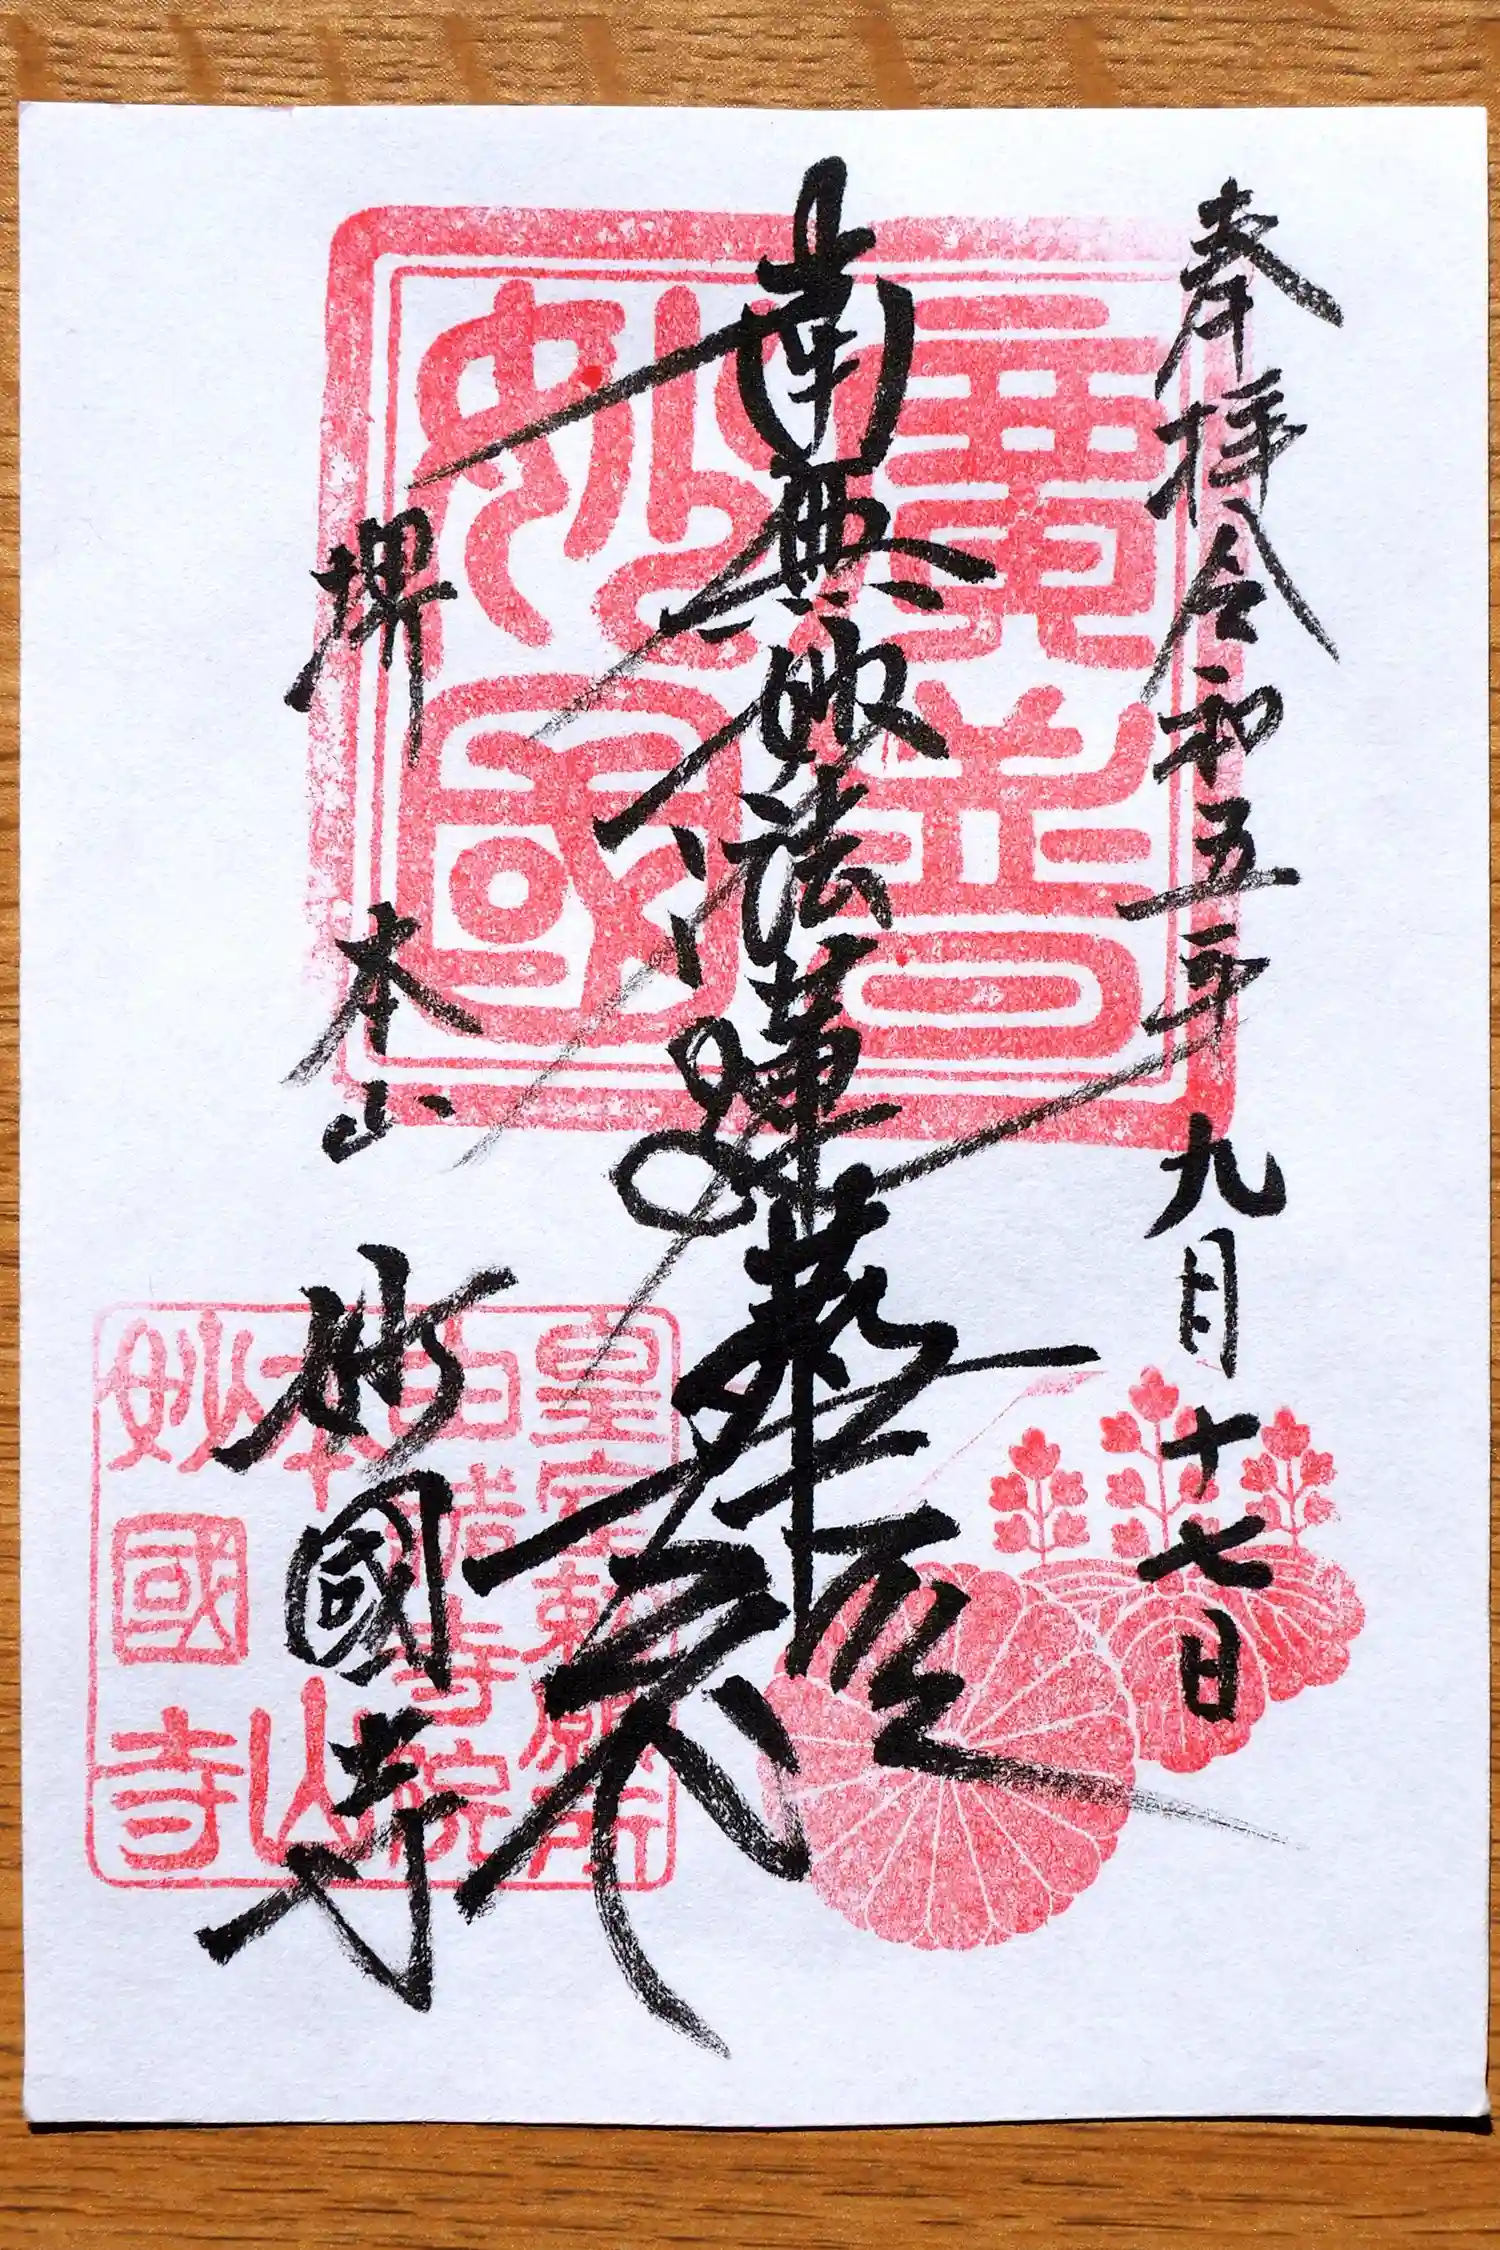 奉拝令和五年九月十七日
南無妙法蓮華経
堺 本山 妙國寺
廣普
妙國
皇室勅願所
由緒寺院
本山
妙國寺